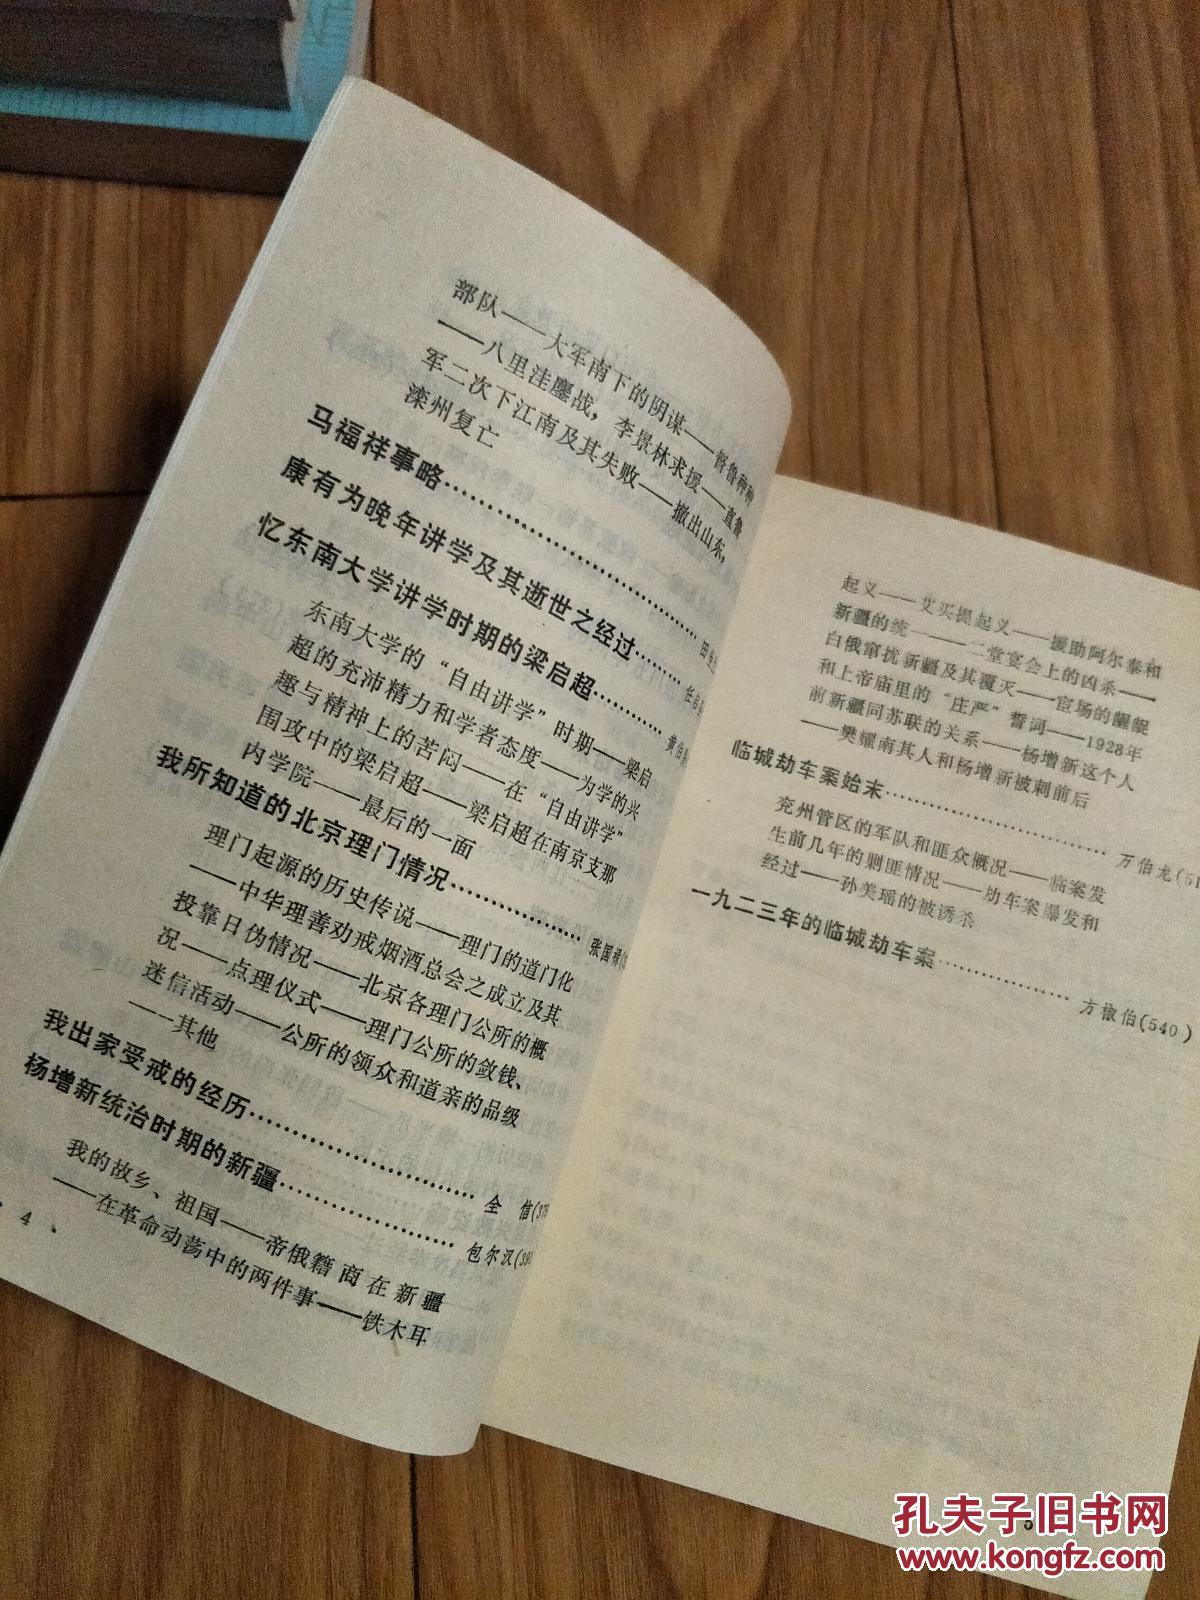 部队——大军南下的阴谋——督鲁种种
——八里洼鏖战，李景林求援——直鲁
军二次下江南及其失败——撤出山东，
滦州复亡
马福祥事略……………………田生
康有为晚年讲学及其逝世之经过……任启
忆东南大学讲学时期的梁启超…………黄伯
东南大学的“自由讲学”时期——梁启
超的充沛精力和学者态度——为学的兴
趣与精神上的苦闷——在“自由讲学”
围攻中的梁启超——梁启超在南京支那
内学院——最后的一面
我所知道的北京理门情况…………张国禄(
理门起源的历史传说——理门的道门化
——中华理善劝戒烟酒总会之成立及其
投靠日伪情况——北京各理门公所的概
况——点理仪式——理门公所的敛钱、
迷信活动——公所的领众和道亲的品级
——其他
我出家受戒的经历……………………全 信(37
杨增新统治时期的新疆………………包尔汉(39
我的故乡、祖国——帝俄籍商在新疆
——在革命动荡中的两件事——铁木耳
4
起义——艾买提起义——援助阿尔泰和
新疆的统一——二堂宴会上的凶杀——
白俄窜扰新疆及其覆灭——宦场的龌龊
和上帝庙里的“庄严”誓词——1928年
前新疆同苏联的关系——杨增新这个人
——樊耀南其人和杨增新被刺前后
临城劫车案始末……………………万伯龙(51
兖州管区的军队和匪众概况——临案发
生前几年的剿匪情况——劫车案爆发和
经过——孙美瑶的被诱杀
一九二三年的临城劫车案……………方椒伯(540)
5
孔夫子旧书网
www.kongfz.com